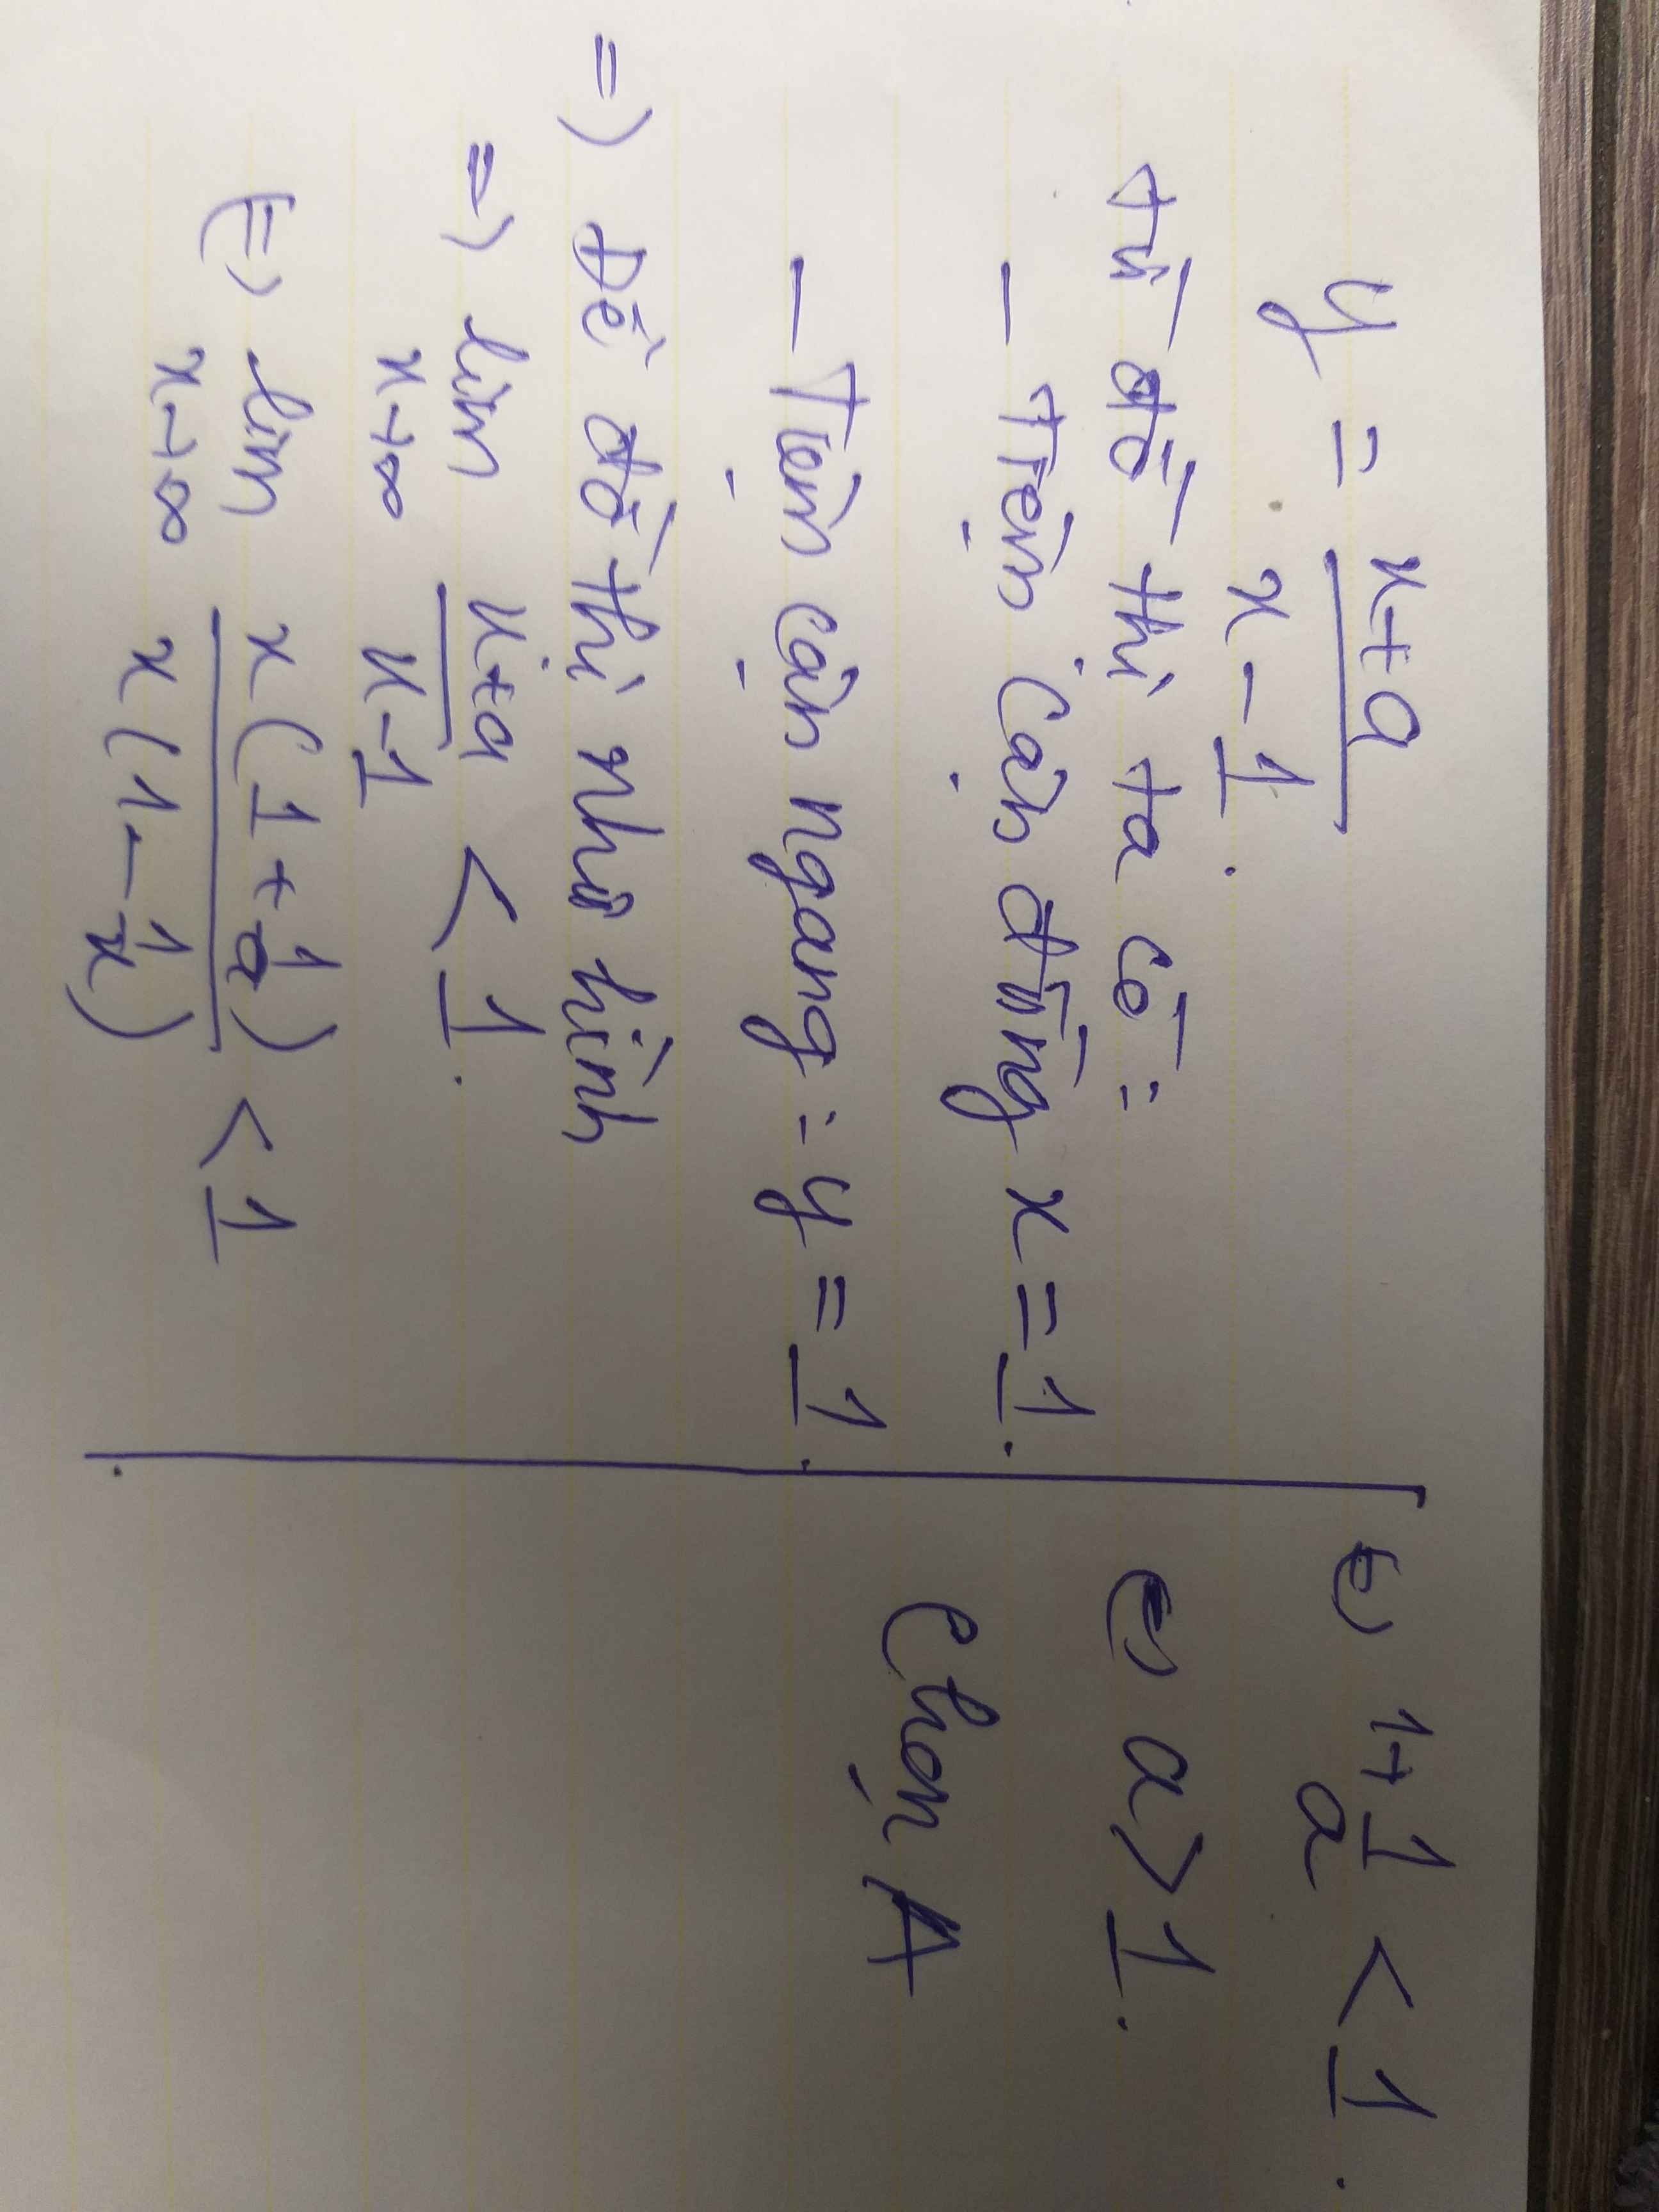 y = x+a / x-1.
Từ đồ thị ta có:
- Tiệm cận đứng x = 1.
- Tiệm cận ngang: y = 1.
=) Để đồ thị như hình
=) lim x→∞ x+a / x-1 < 1.
(=) lim x→∞ x(1 + 1/a) / x(1 - 1/x) < 1
(=) 1 + 1/a < 1.
(=) a > 1.
Chọn A